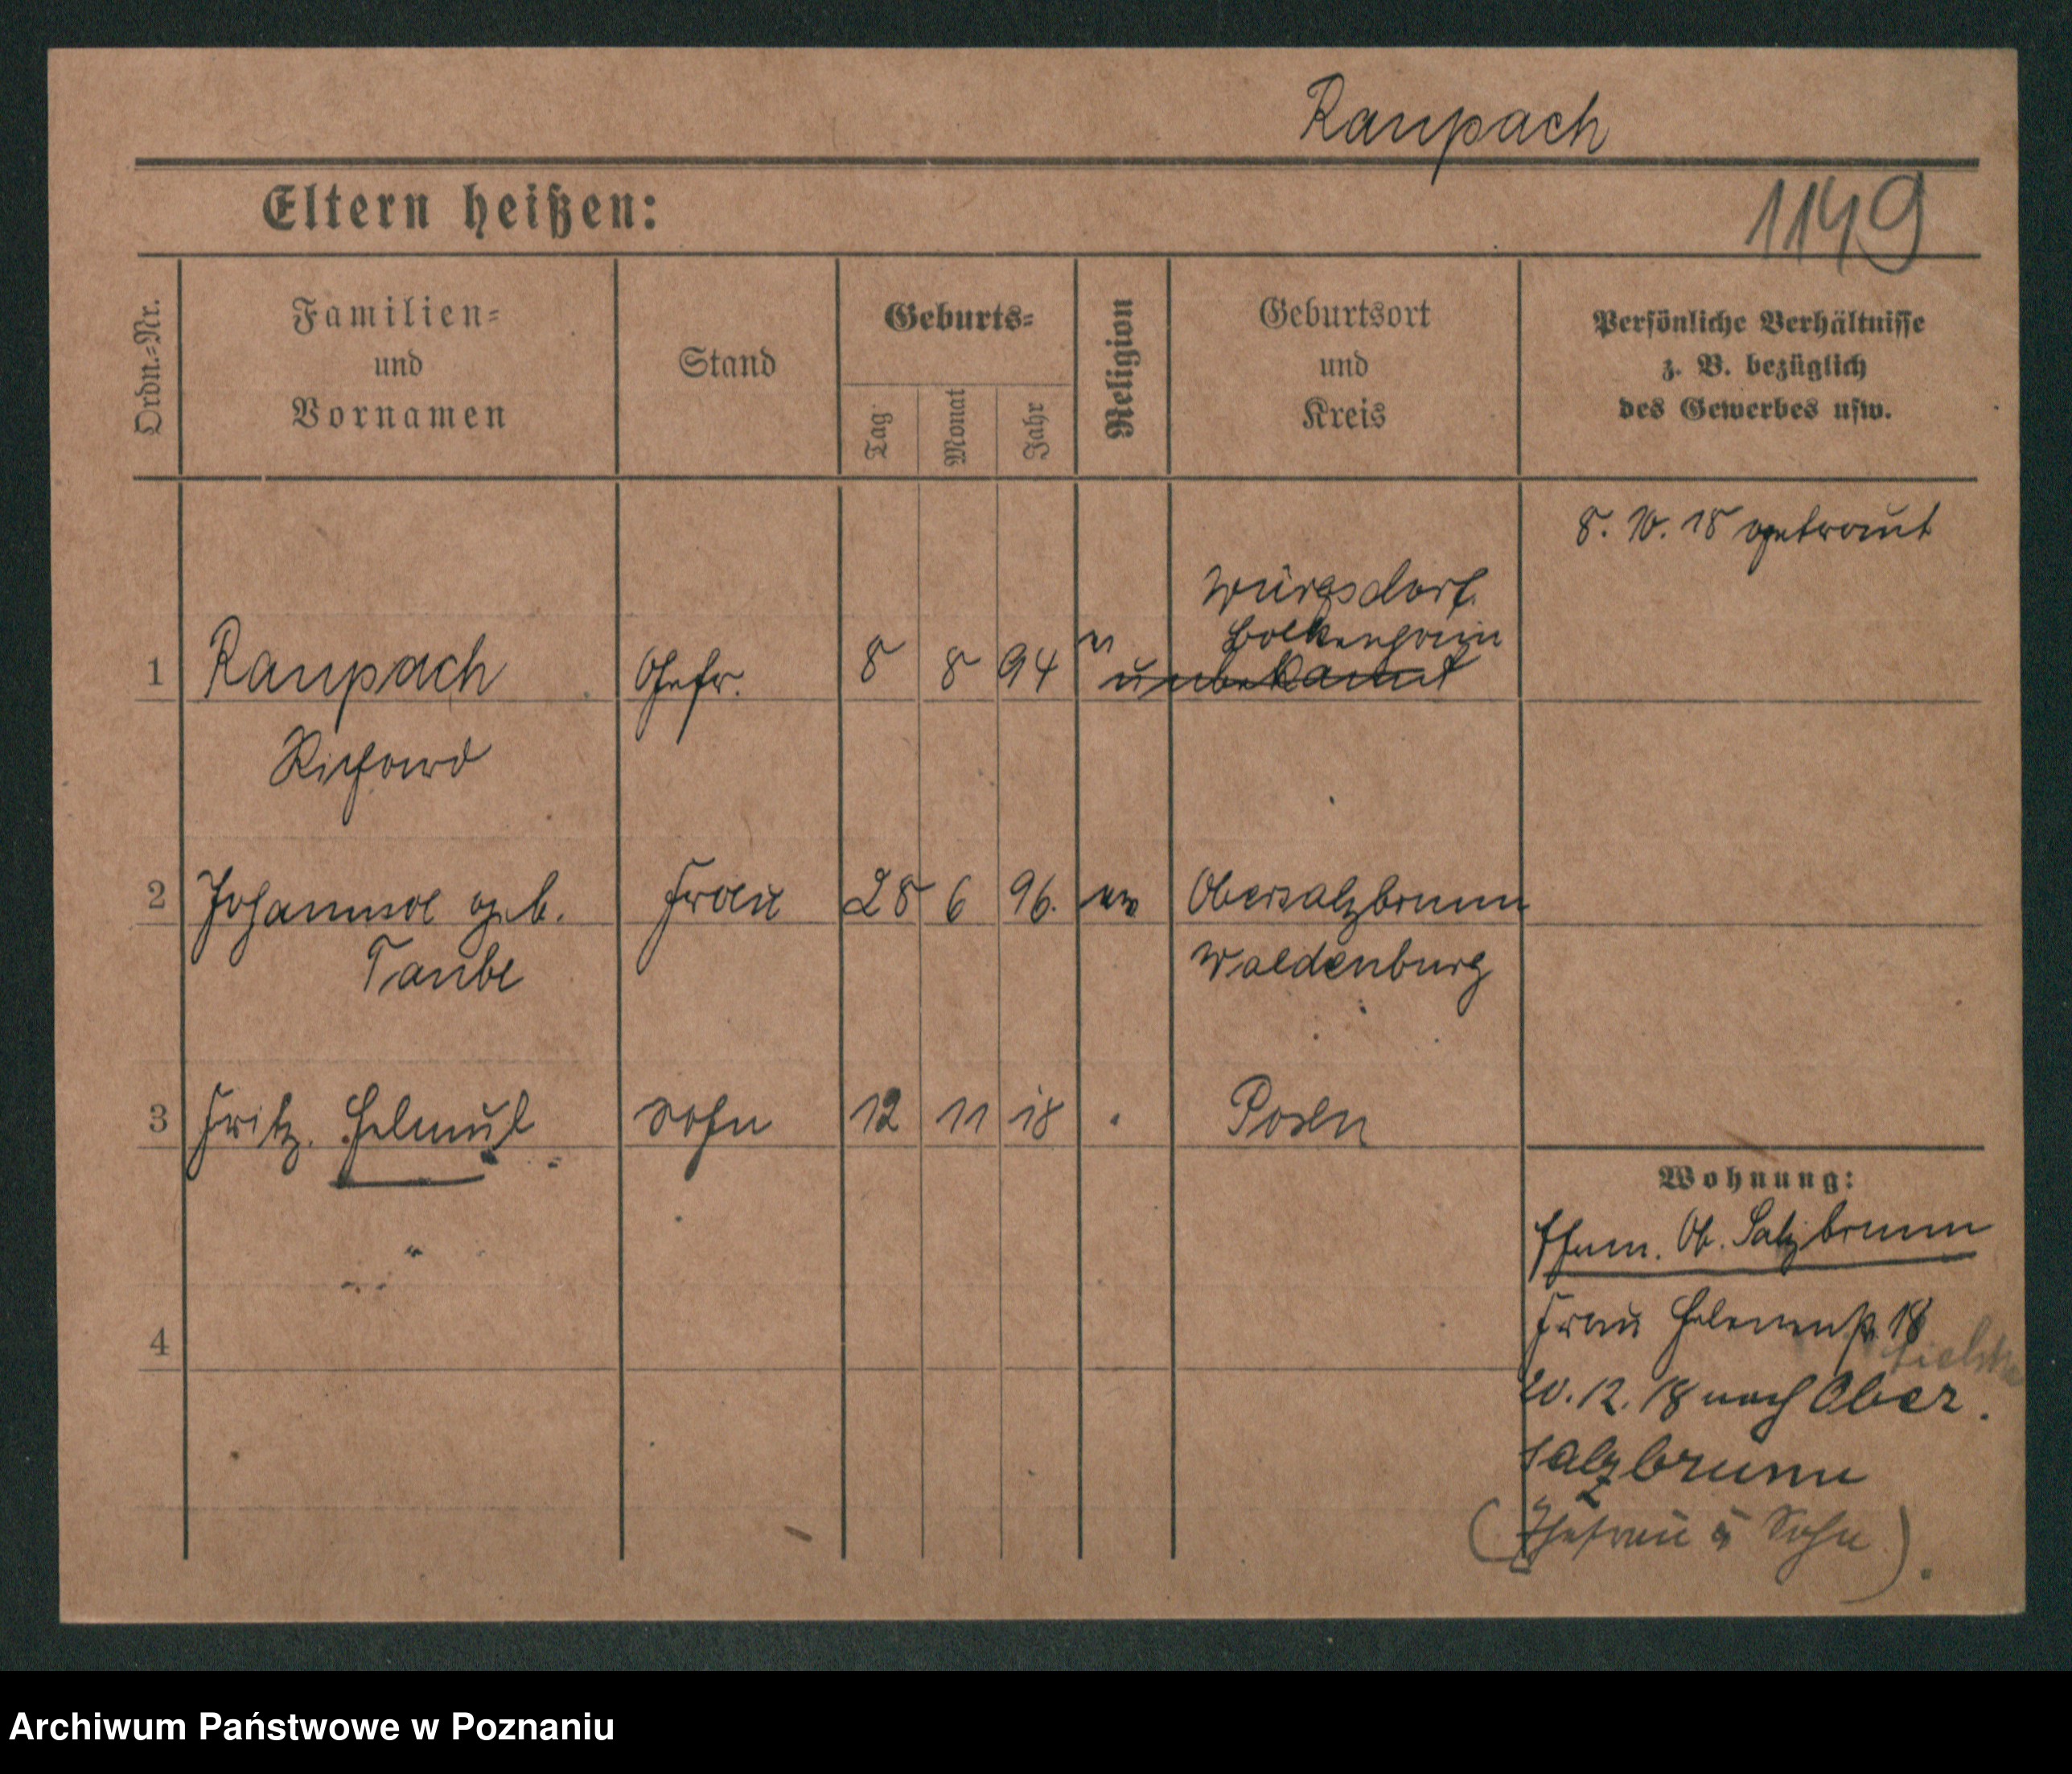 Raupach
1149
Eltern heißen:
Ordn.-Nr.
Familien-
und
Vornamen
Stand
Geburts-
Tag
Monat
Jahr
Religion
Geburtsort
und
Kreis
Persönliche Verhältnisse
z. B. bezüglich
des Gewerbes usw.
8. 10. 18 getraut
Würgsdorf
Bolkenhain
1 Raupach Gefr. 8 8 94 ev unbekannt
Richard
2 Johanna geb. Frau 28 6 96. ev Obersalzbrunn
Taube Waldenburg
3 Fritz. Helmut Sohn 12 11 18 Posen
Wohnung:
Ehem. Ob. Salzbrunn
Frau 18
4
20. 12. 18 nach Ober.
salzbrunn
(Ehefrau u Sohn).
Archiwum Państwowe w Poznaniu